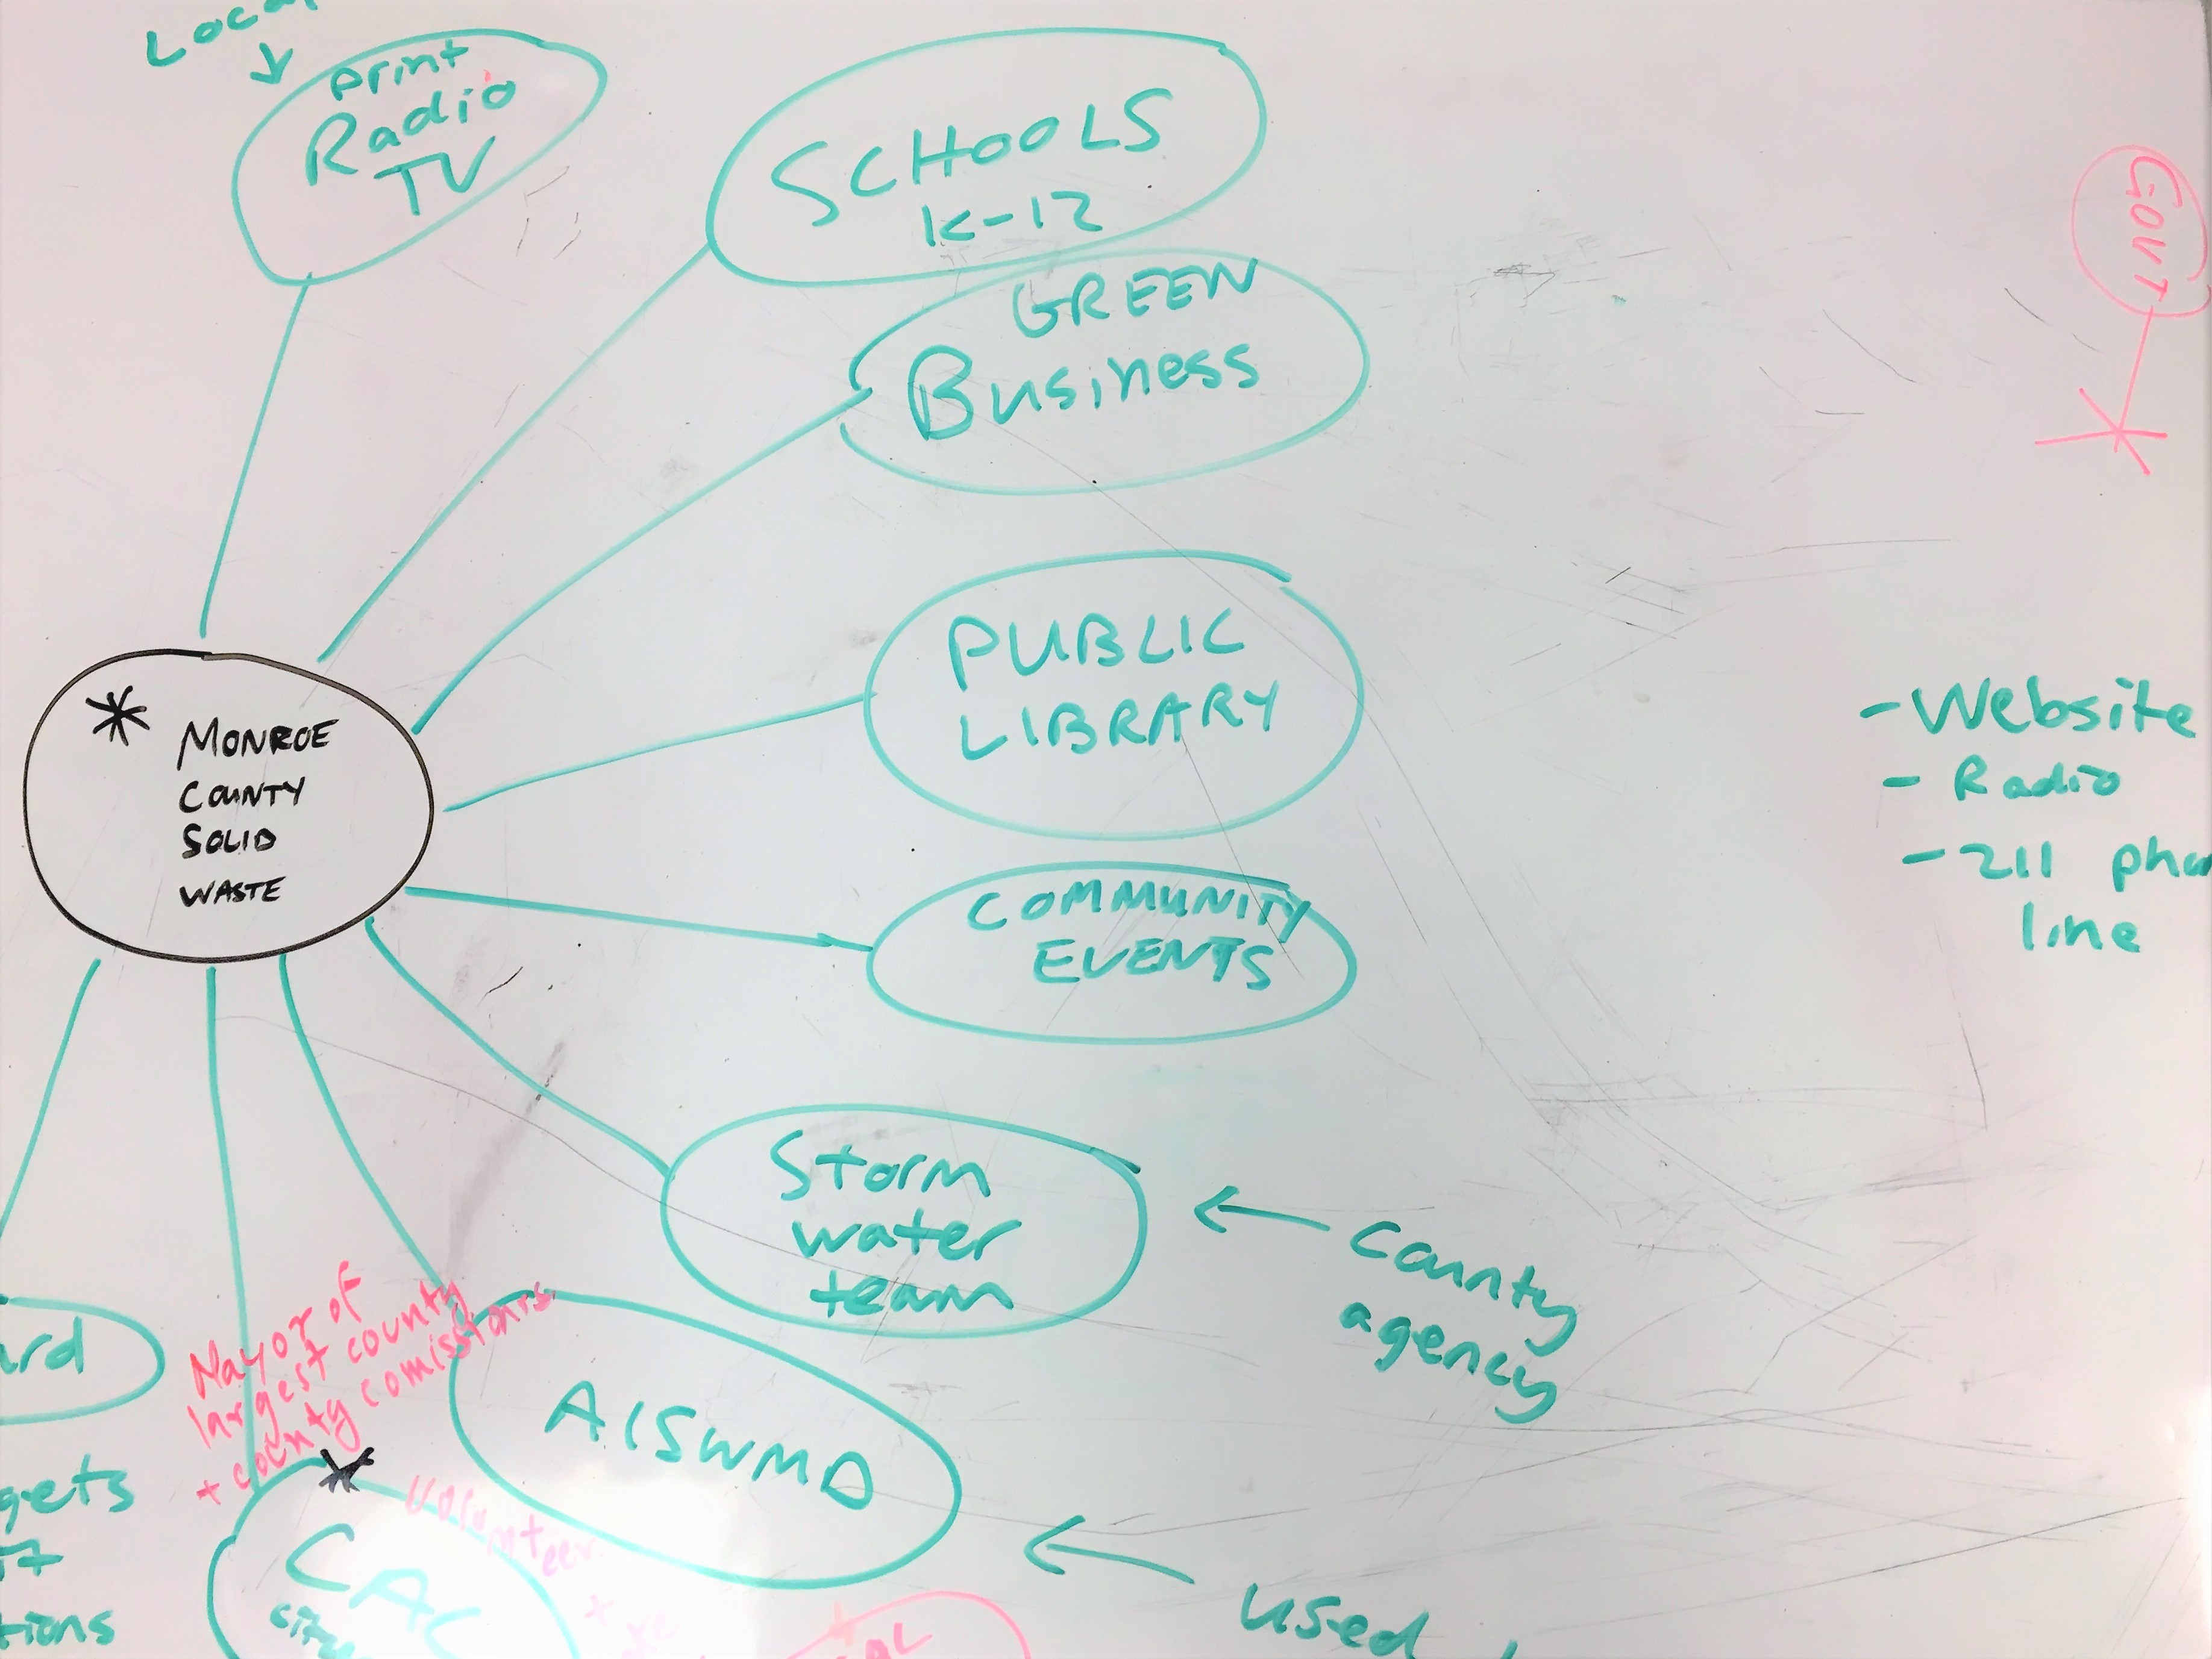 Local
Print
Radio
TV
SCHOOLS
K-12
GREEN
Business
GOVT
PUBLIC
LIBRARY
* MONROE
COUNTY
SOLID
WASTE
- Website
- Radio
- 211
line
COMMUNITY
EVENTS
Storm
water
team
County
agency
Mayor of
largest county
+ county comissioners
AISWMD
volunteer
CAC
used